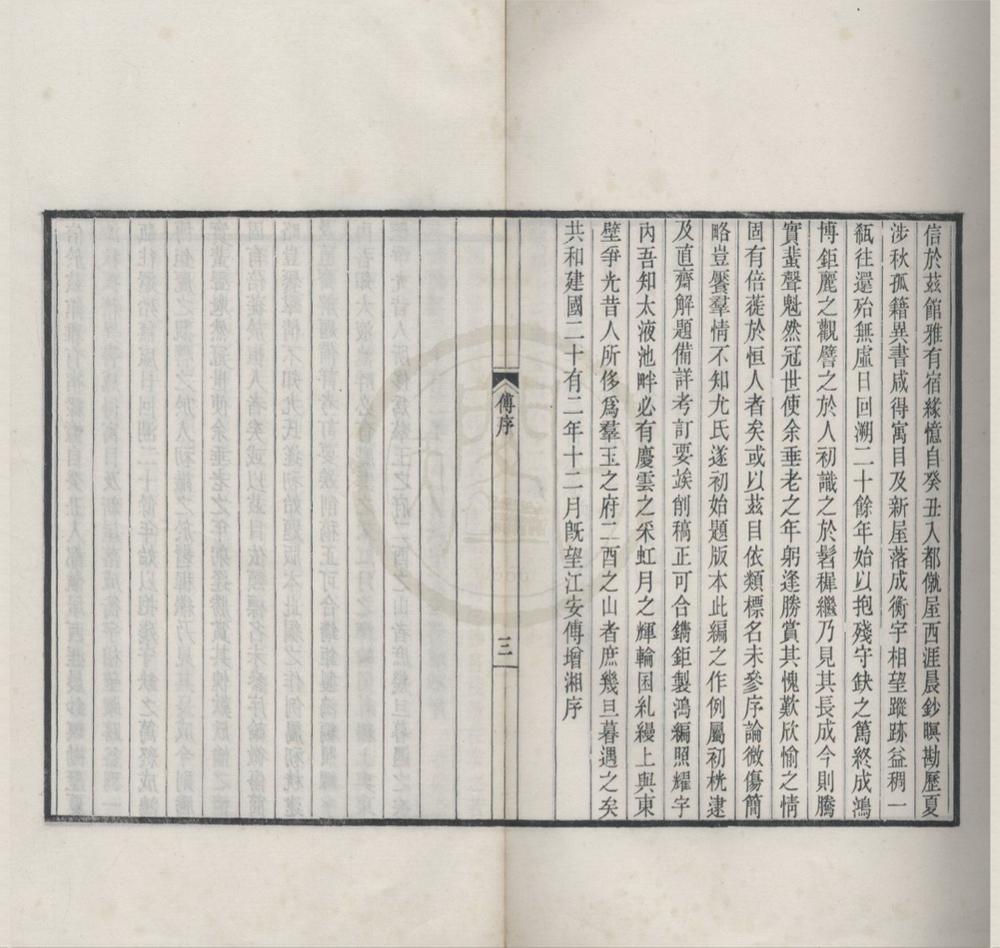 信於茲館雅有宿緣憶自癸丑入都僦屋西涯晨鈔暝勘歷夏
涉秋孤籍異書咸得寓目及新屋落成衡宇相望蹤跡益稠一
瓻往還殆無虛日回溯二十餘年始以抱殘守缺之篤終成鴻
博鉅麗之觀譬之於人初識之於髫穉繼乃見其長成今則騰
實蜚聲魁然冠世使余垂老之年躬逢勝賞其愧歎欣愉之情
固有倍蓰於恒人者矣或以茲目依類標名未參序論微傷簡
略豈饜羣情不知尤氏遂初始題版本此編之作例屬初桄逮
及直齋解題備詳考訂要竢削稿正可合鐫鉅製鴻編照耀宇
內吾知太液池畔必有慶雲之采虹月之輝輪囷糺縵上與東
壁爭光昔人所侈爲羣玉之府二酉之山者庶幾旦暮遇之矣
共和建國二十有二年十二月既望江安傅增湘序
傅序
三